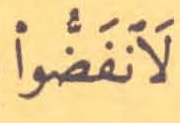 لَاَنْفَضُّواْ